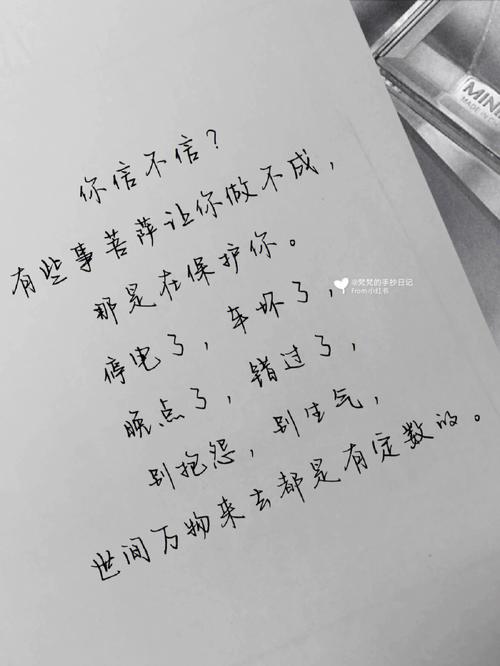 你信不信？
有些事菩萨让你做不成，
那是在保护你。
停电了，车坏了，
晚点了，错过了，
别抱怨，别生气，
世间万物来去都是有定数的。
MINI
MADE IN
@梵梵的手抄日记
From小红书